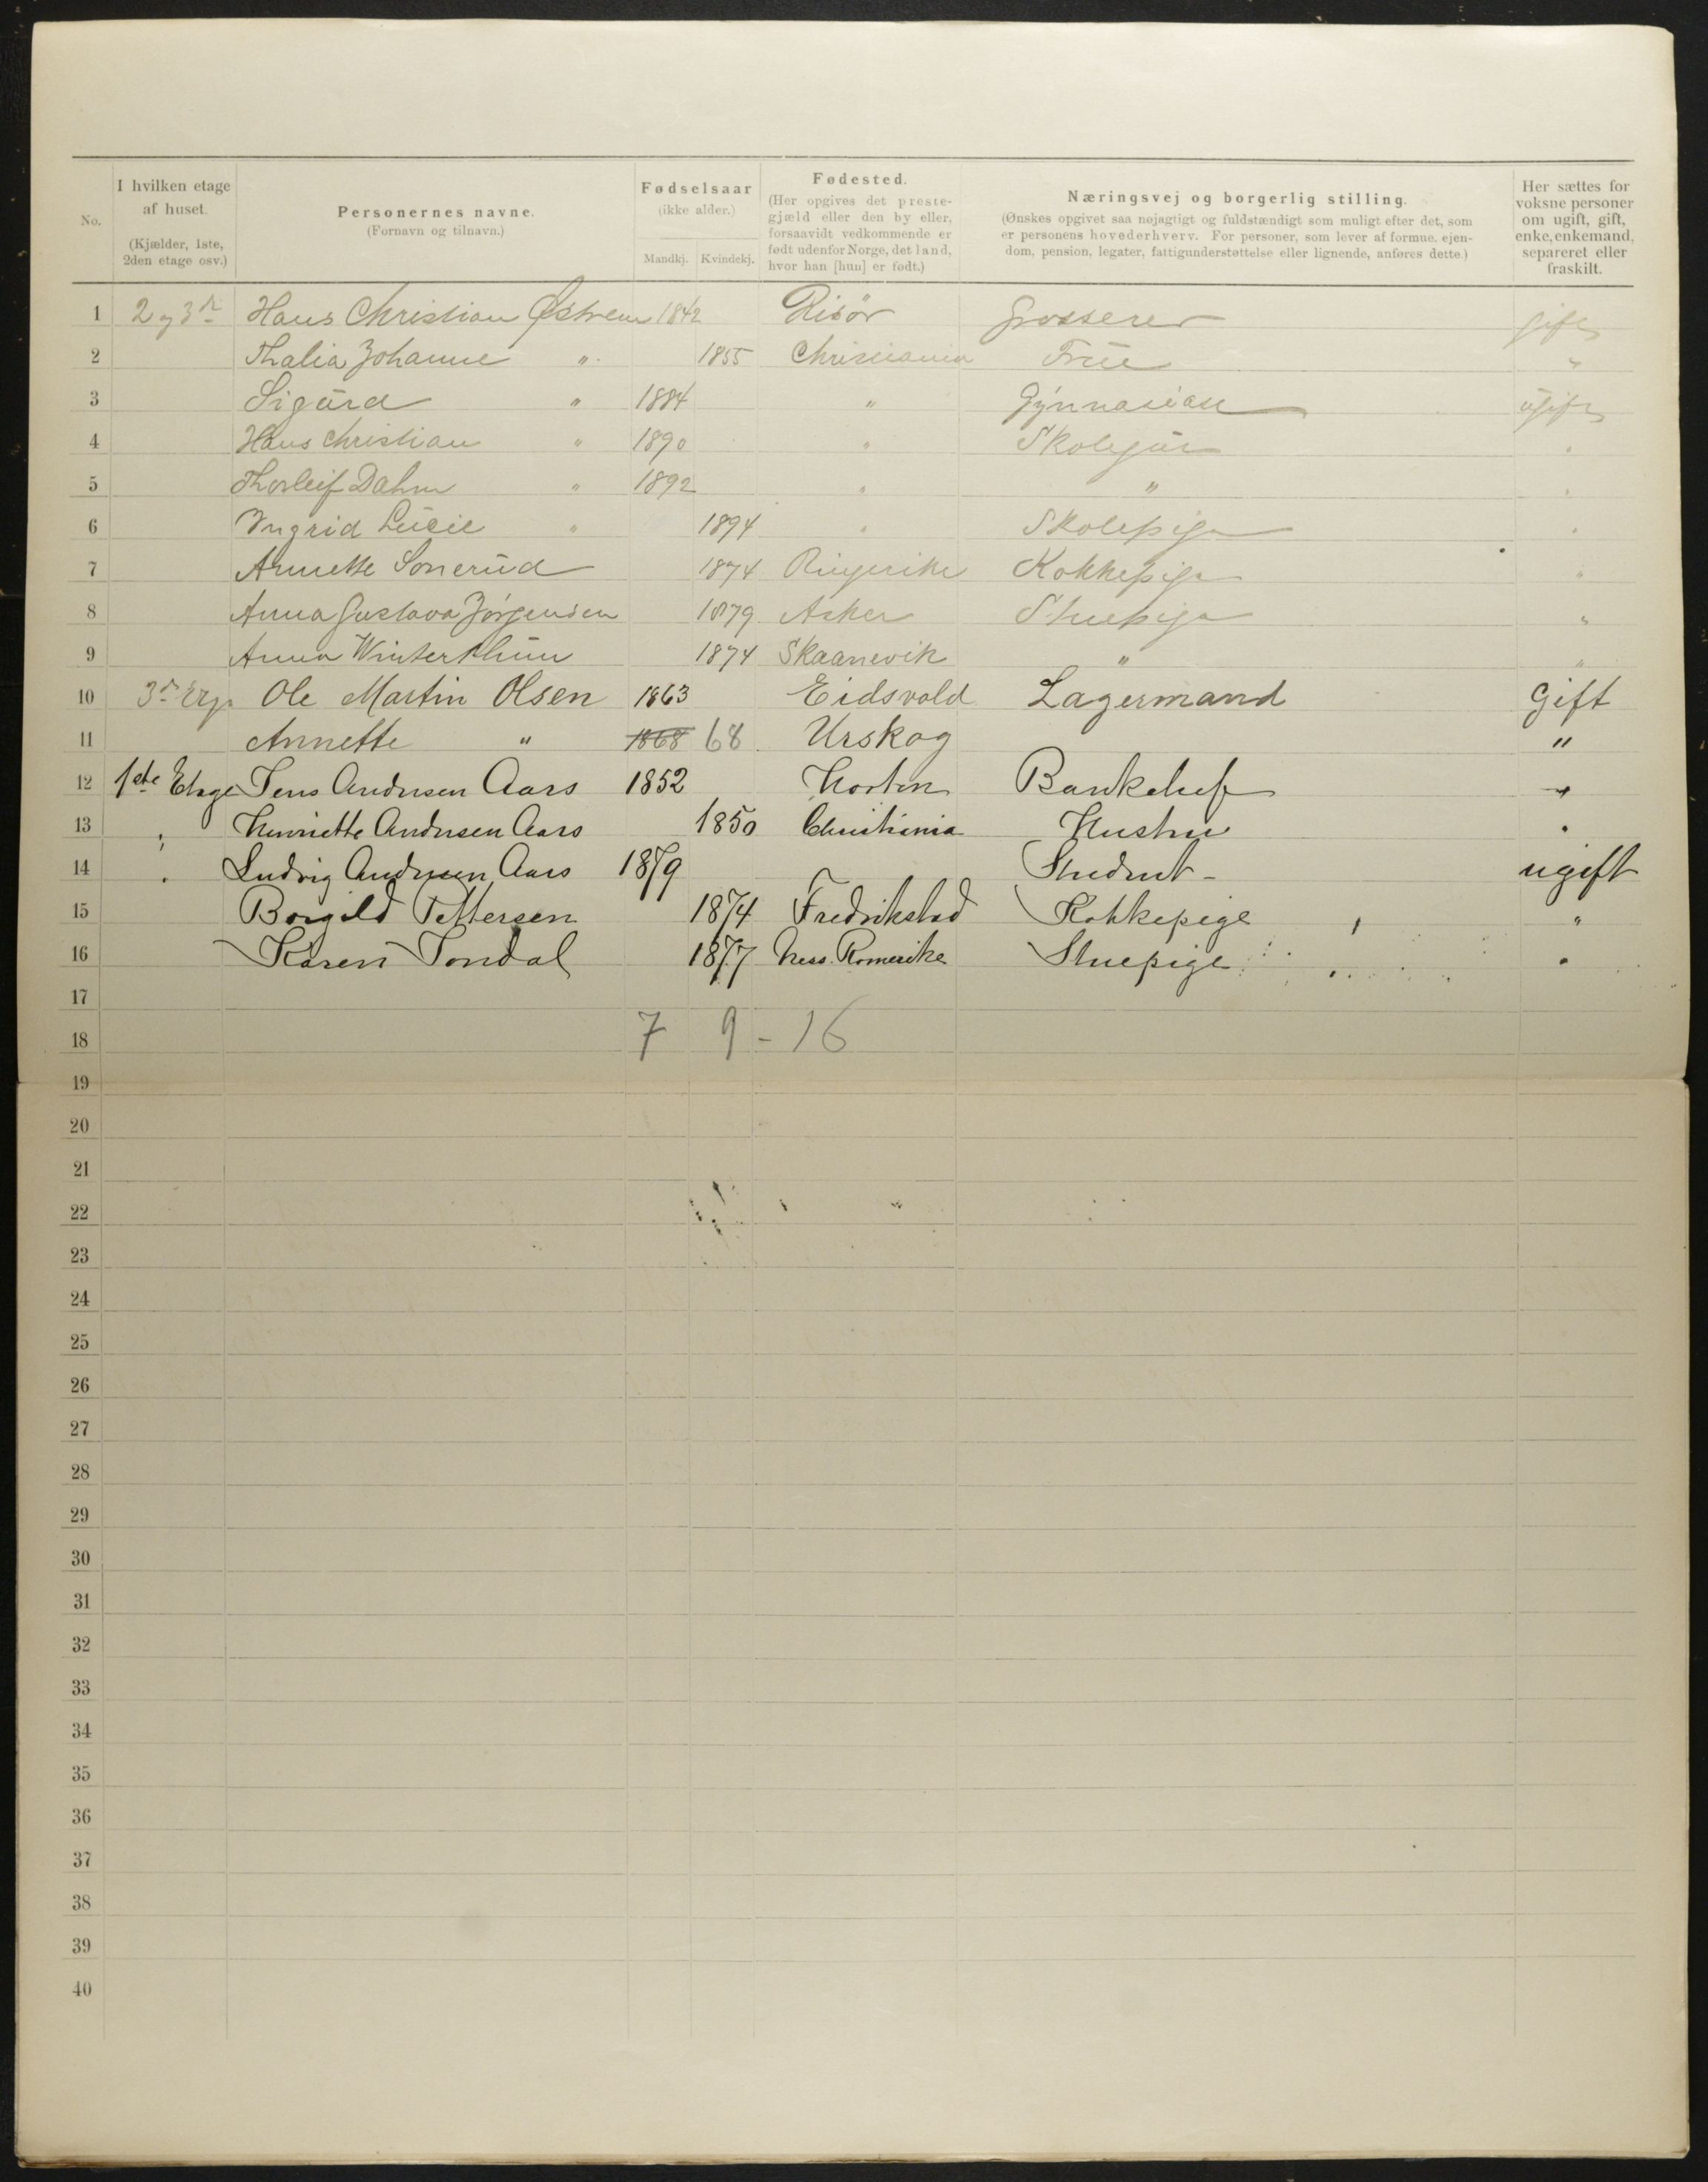 No.
I hvilken etage af huset. (Kjælder, 1ste, 2den etage osv.)
Personernes navne. (Fornavn og tilnavn.)
Fødselsaar (ikke alder.) Mandkj. Kvindekj.
Fødested. (Her opgives det prestegjæld eller den by eller, forsaavidt vedkommende er født udenfor Norge, det land, hvor han [hun] er født.)
Næringsvej og borgerlig stilling. (Ønskes opgivet saa nøjagtigt og fuldstændigt som muligt efter det, som er personens hovederhverv. For personer, som lever af formue, ejendom, pension, legater, fattigunderstøttelse eller lignende, anføres dette.)
Her sættes for voksne personer om ugift, gift, enke, enkemand, separeret eller fraskilt.
1 2 og 3die Hans Christian Østrem 1842 Risør Grosserer gift
2 Thalia Johanne " 1855 Christiania Frue "
3 Sigurd " 1884 " Gymnasiast ugift
4 Hans Christian " 1890 " Skolegut "
5 Thorleif Dahm " 1892 " " "
6 Ingrid Lucie " 1894 " Skolepige "
7 Annette Sonerud 1874 Ringerike Kokkepige "
8 Anna Gustava Jørgensen 1879 Asker Stuepige "
9 Anna Winterthun 1874 Skaanevik " "
10 3die Ole Martin Olsen 1863 Eidsvold Lagermand Gift
11 Annette " 1868 68 Urskog "
12 1ste Etage Jens Andresen Aars 1852 Horten Bankchef "
13 " Henriette Andresen Aars 1850 Christiania Hustru "
14 " Ludvig Andresen Aars 1879 Student - ugift
15 Borgild Pettersen 1874 Fredrikstad Kokkepige "
16 Karen Sondal 1877 Næss. Romerike Stuepige "
17
18 7 9 - 16
19
20
21
22
23
24
25
26
27
28
29
30
31
32
33
34
35
36
37
38
39
40